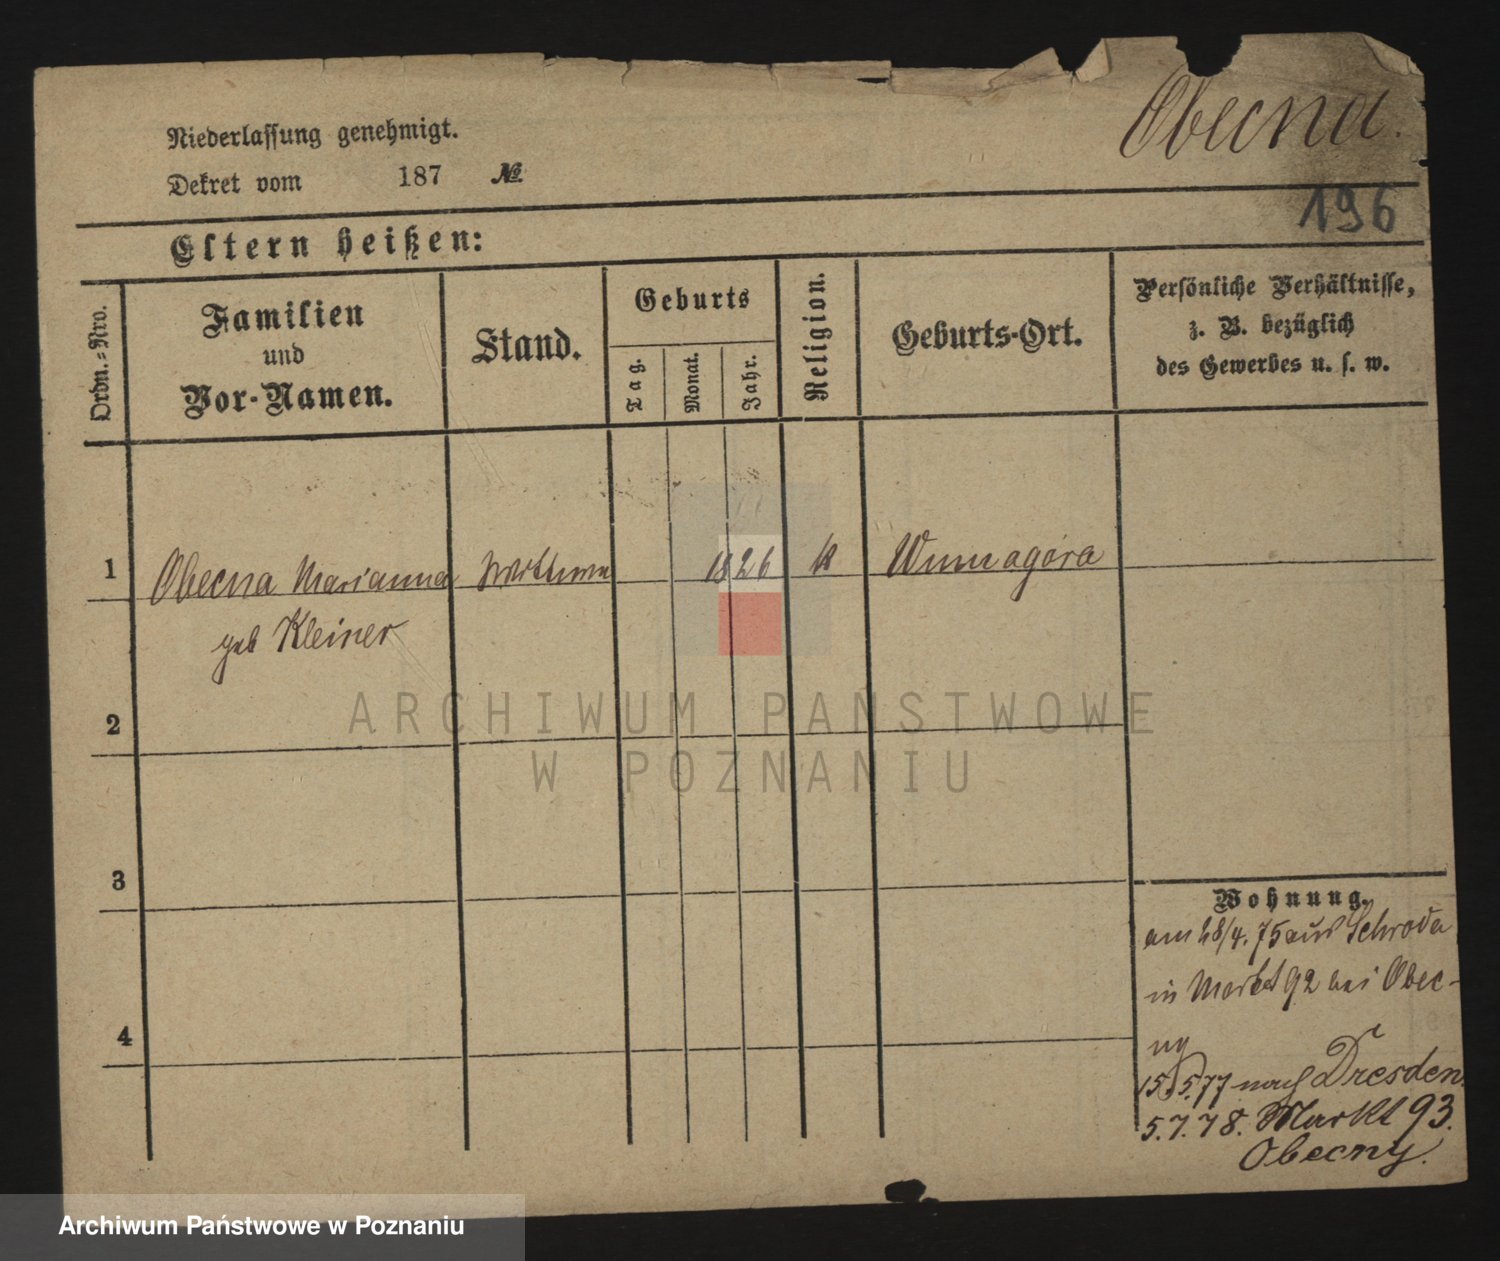 Obecna.
Niederlassung genehmigt.
Dekret vom 187 №
196
Eltern heißen:
Ordn.=Nro.
Familien
und
Vor-Namen.
Stand.
Geburts
Tag.
Monat.
Jahr.
Religion.
Geburts-Ort.
Persönliche Verhältnisse,
z. B. bezüglich
des Gewerbes u. s. w.
1 Obecna Marianna Wittwe 1826 k Winnagóra
geb Kleiner
2
3
4
Wohnung.
am 28/4. 75 aus Schroda
in Markt 92 bei Obec-
ny
15.5.77 nach Dresden.
5.7.78. Markt 93.
Obecny.
ARCHIWUM PAŃSTWOWE
W POZNANIU
Archiwum Państwowe w Poznaniu